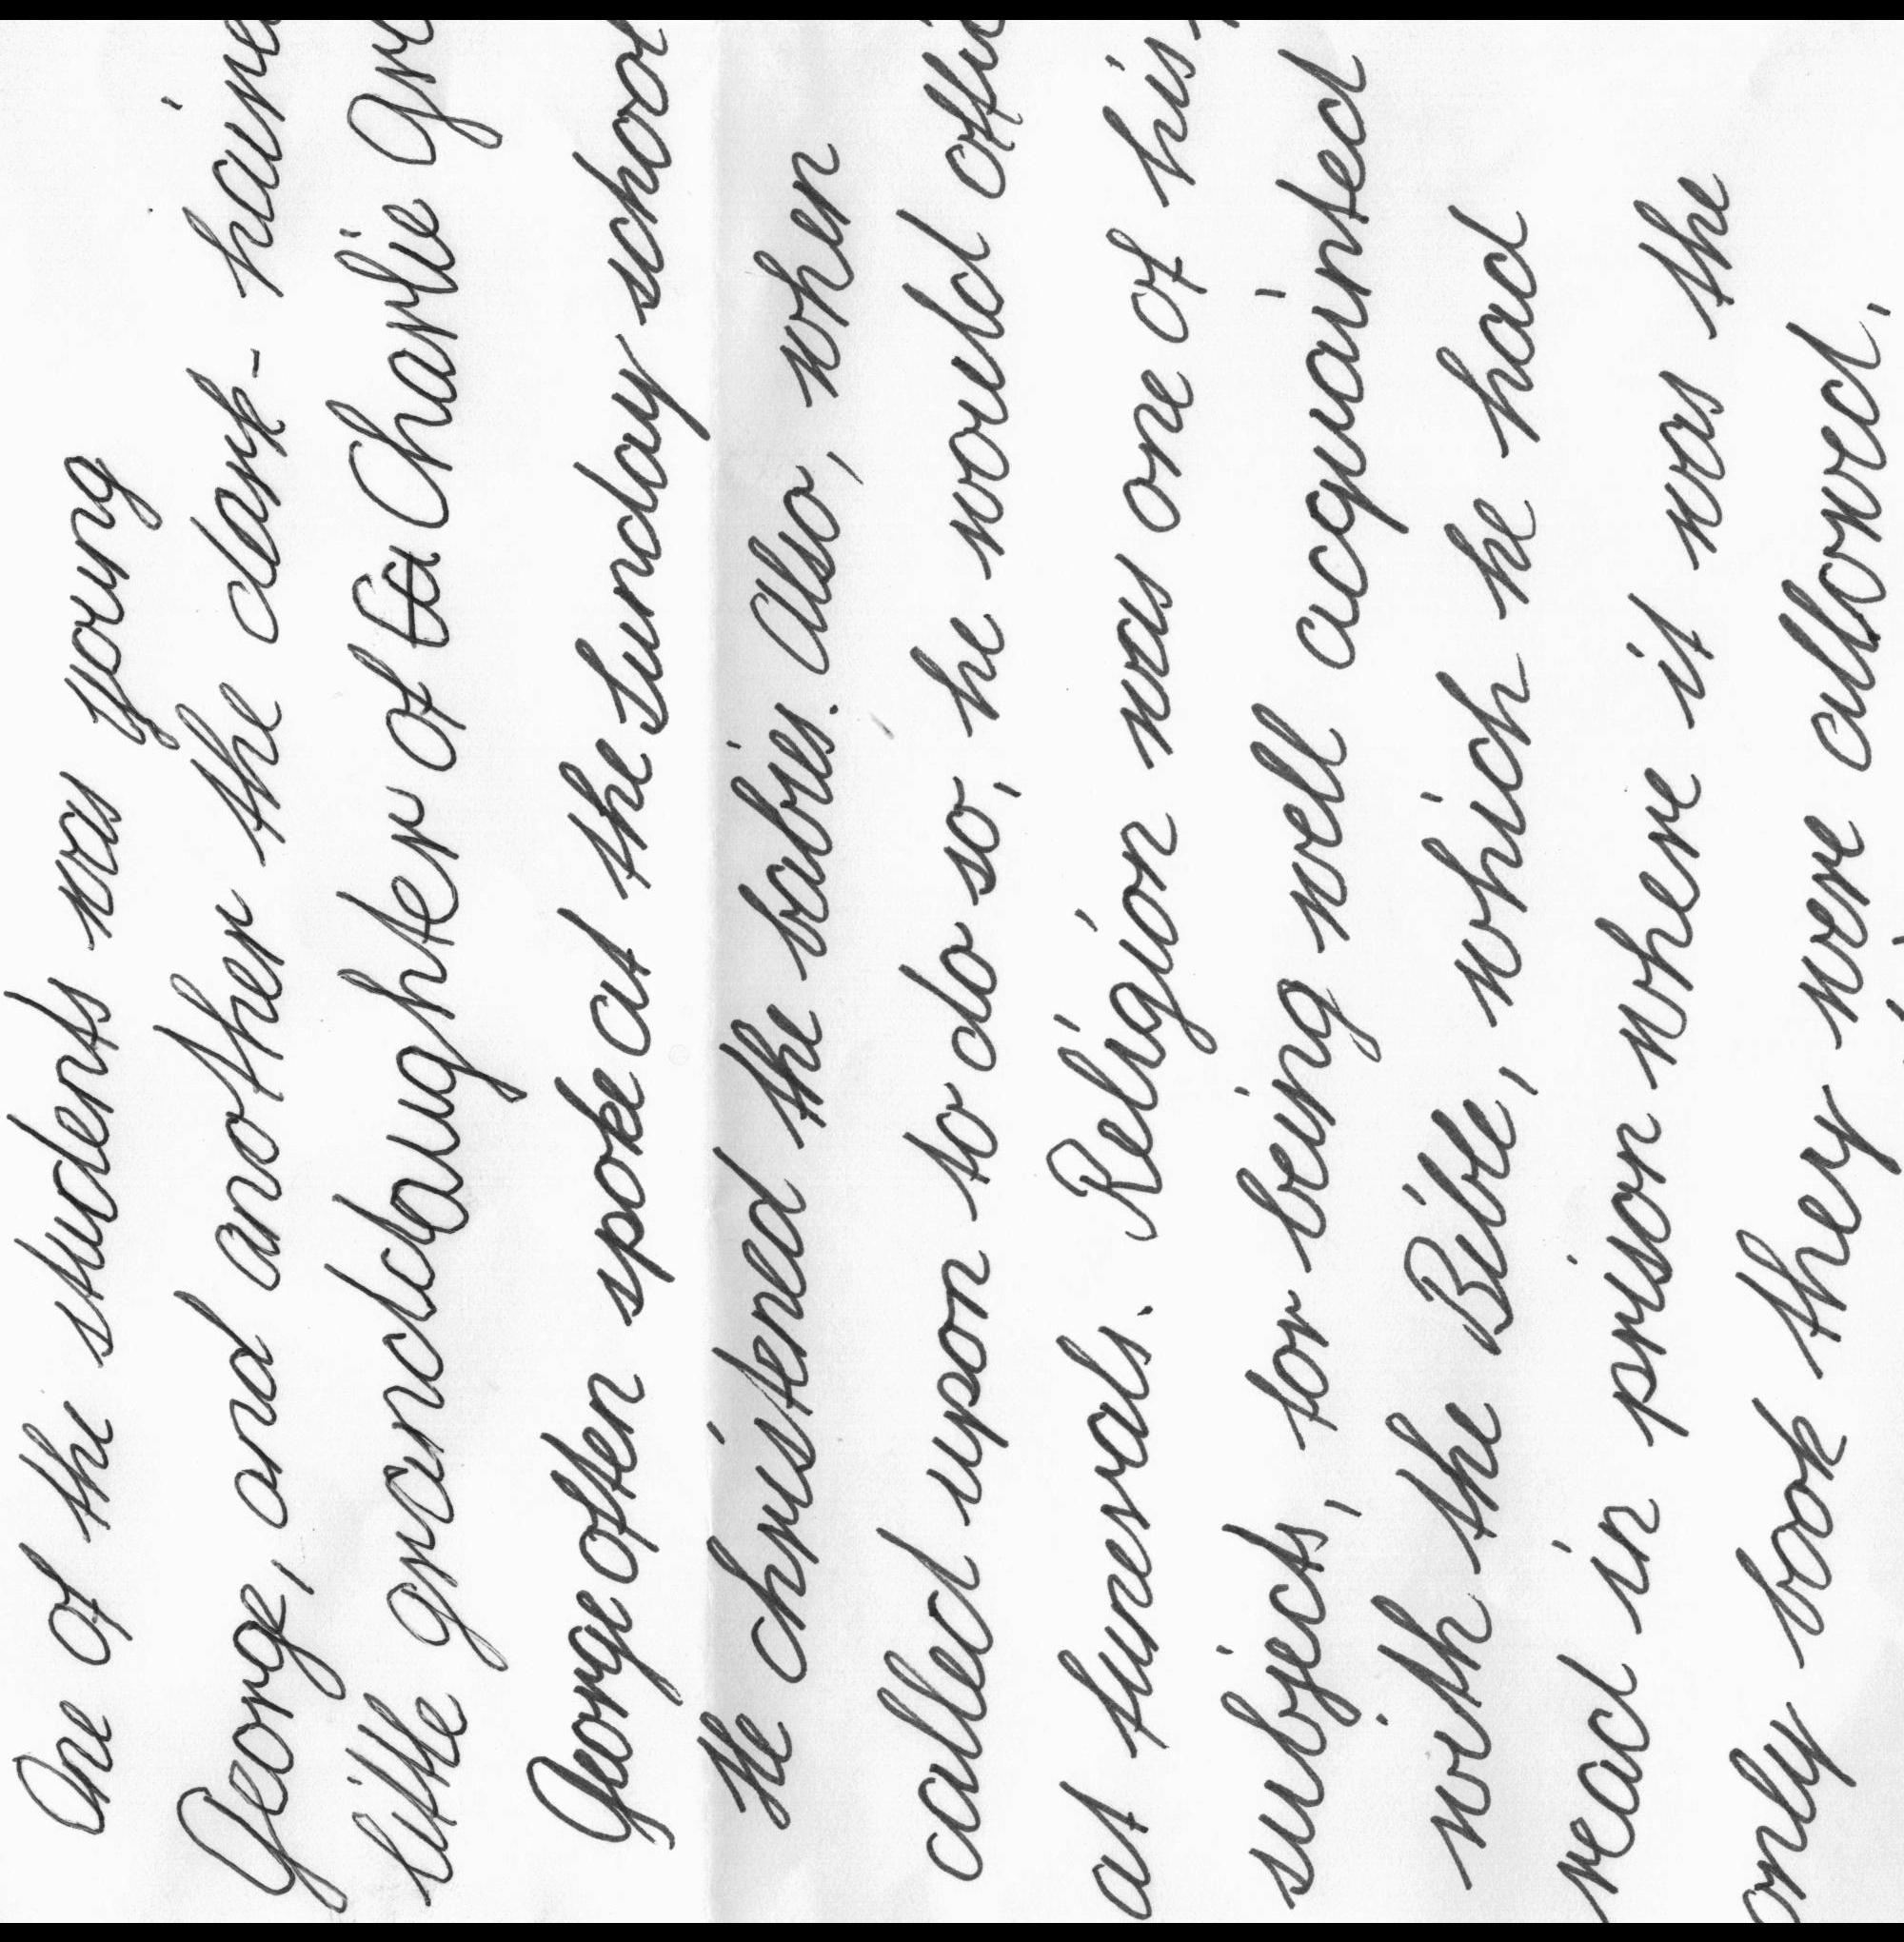 One of the students was young
George, and another the dark-
little granddaughter of Charlie
George often spoke at the Sunday school
He christened the babies. Also, when
called upon to do so, he would
at funerals. Religion was one of his
subjects, for being well acquainted
with the Bible, which he had
read in prison where it was the
only book they were allowed.